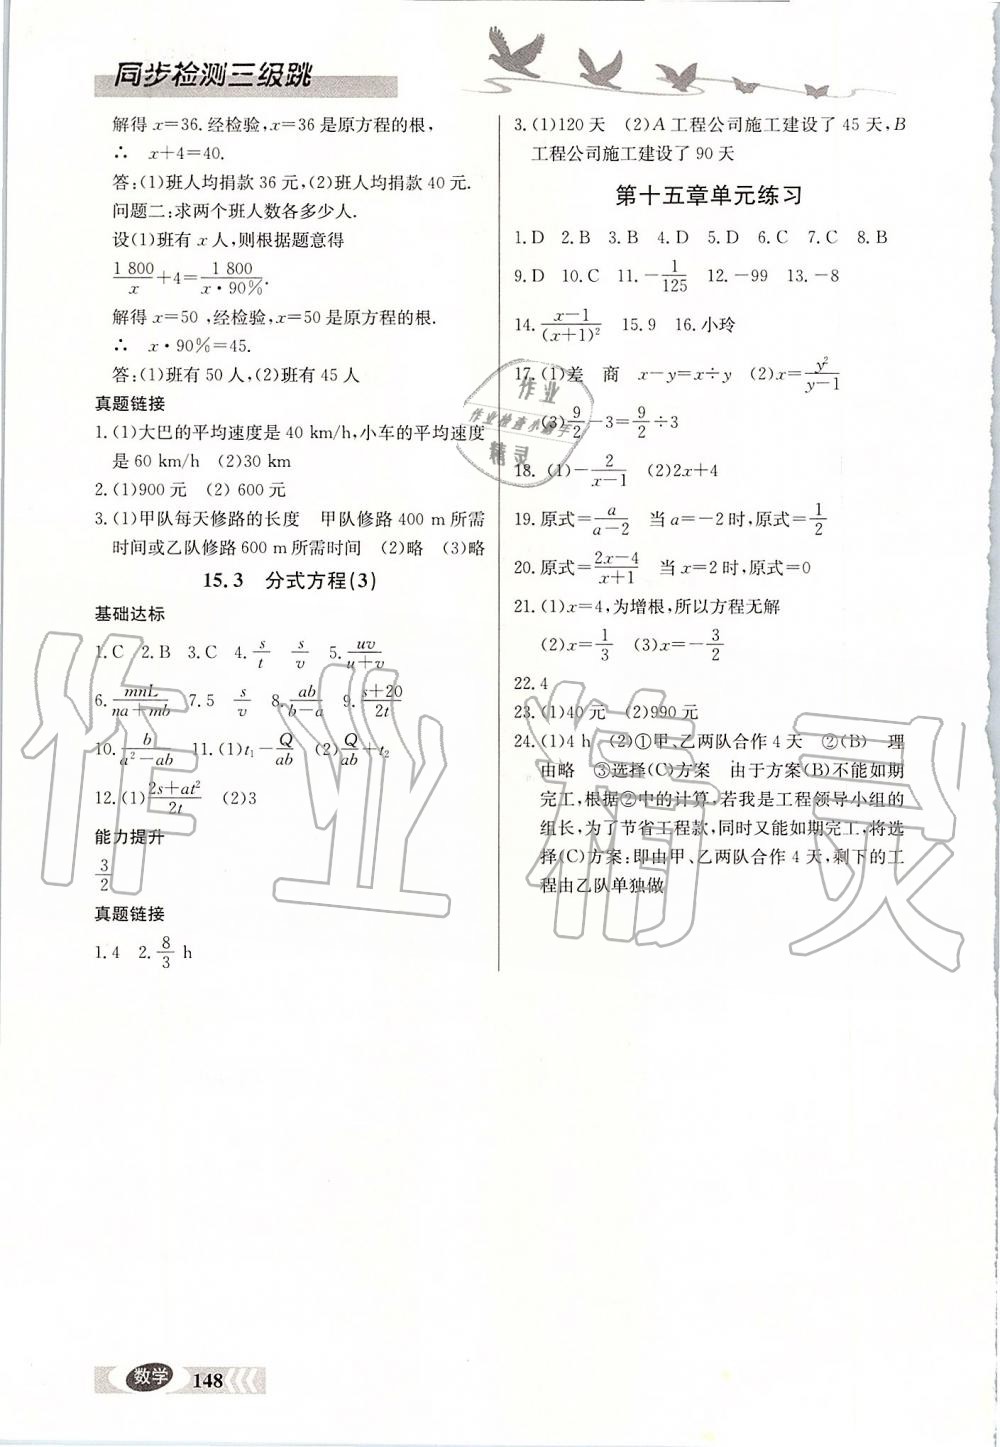 同步检测三级跳
解得 x=36.经检验,x=36 是原方程的根,
∴ x+4=40.
答:(1)班人均捐款 36 元,(2)班人均捐款 40 元.
问题二:求两个班人数各多少人.
设(1)班有 x 人,则根据题意得
1 800/x+4=1 800/(x·90%).
解得 x=50 ,经检验,x=50 是原方程的根.
∴ x·90%=45.
答:(1)班有 50 人,(2)班有 45 人
真题链接
1.(1)大巴的平均速度是 40 km/h,小车的平均速度
是 60 km/h (2)30 km
2.(1)900 元 (2) 600 元
3.(1)甲队每天修路的长度 甲队修路 400 m 所需
时间或乙队修路 600 m 所需时间 (2)略 (3)略
15.3 分式方程(3)
基础达标
1.C 2.B 3.C 4.s/t s/v 5.uv/(u+v)
6.mnL/(na+mb) 7.5 s/v 8.ab/(b-a) 9.(s+20)/2t
10.b/(a²-ab) 11.(1)t₁-Q/ab (2)Q/ab+t₂
12.(1)(2s+at²)/2t (2)3
能力提升
3/2
真题链接
1.4 2.8/3 h
3.(1)120 天 (2)A 工程公司施工建设了 45 天,B
工程公司施工建设了 90 天
第十五章单元练习
1.D 2.B 3.B 4.D 5.D 6.C 7.C 8.B
9.D 10.C 11.-1/125 12.-99 13.-8
14.(x-1)/(x+1)² 15.9 16.小玲
17.(1)差 商 x-y=x÷y (2)x=y²/(y-1)
(3)9/2-3=9/2÷3
18.(1)-2/(x-1) (2)2x+4
19.原式=a/(a-2) 当 a=-2 时,原式=1/2
20.原式=(2x-4)/(x+1) 当 x=2 时,原式=0
21.(1)x=4,为增根,所以方程无解
(2)x=1/3 (3)x=-3/2
22.4
23.(1)40 元 (2)990 元
24.(1)4 h (2)①甲、乙两队合作 4 天 ②(B) 理
由略 ③选择(C)方案 由于方案(B)不能如期
完工,根据②中的计算,若我是工程领导小组的
组长,为了节省工程款,同时又能如期完工,将选
择(C)方案:即由甲、乙两队合作 4 天,剩下的工
程由乙队单独做
作业
作业检查小助手
精灵
作业精灵
数学 148